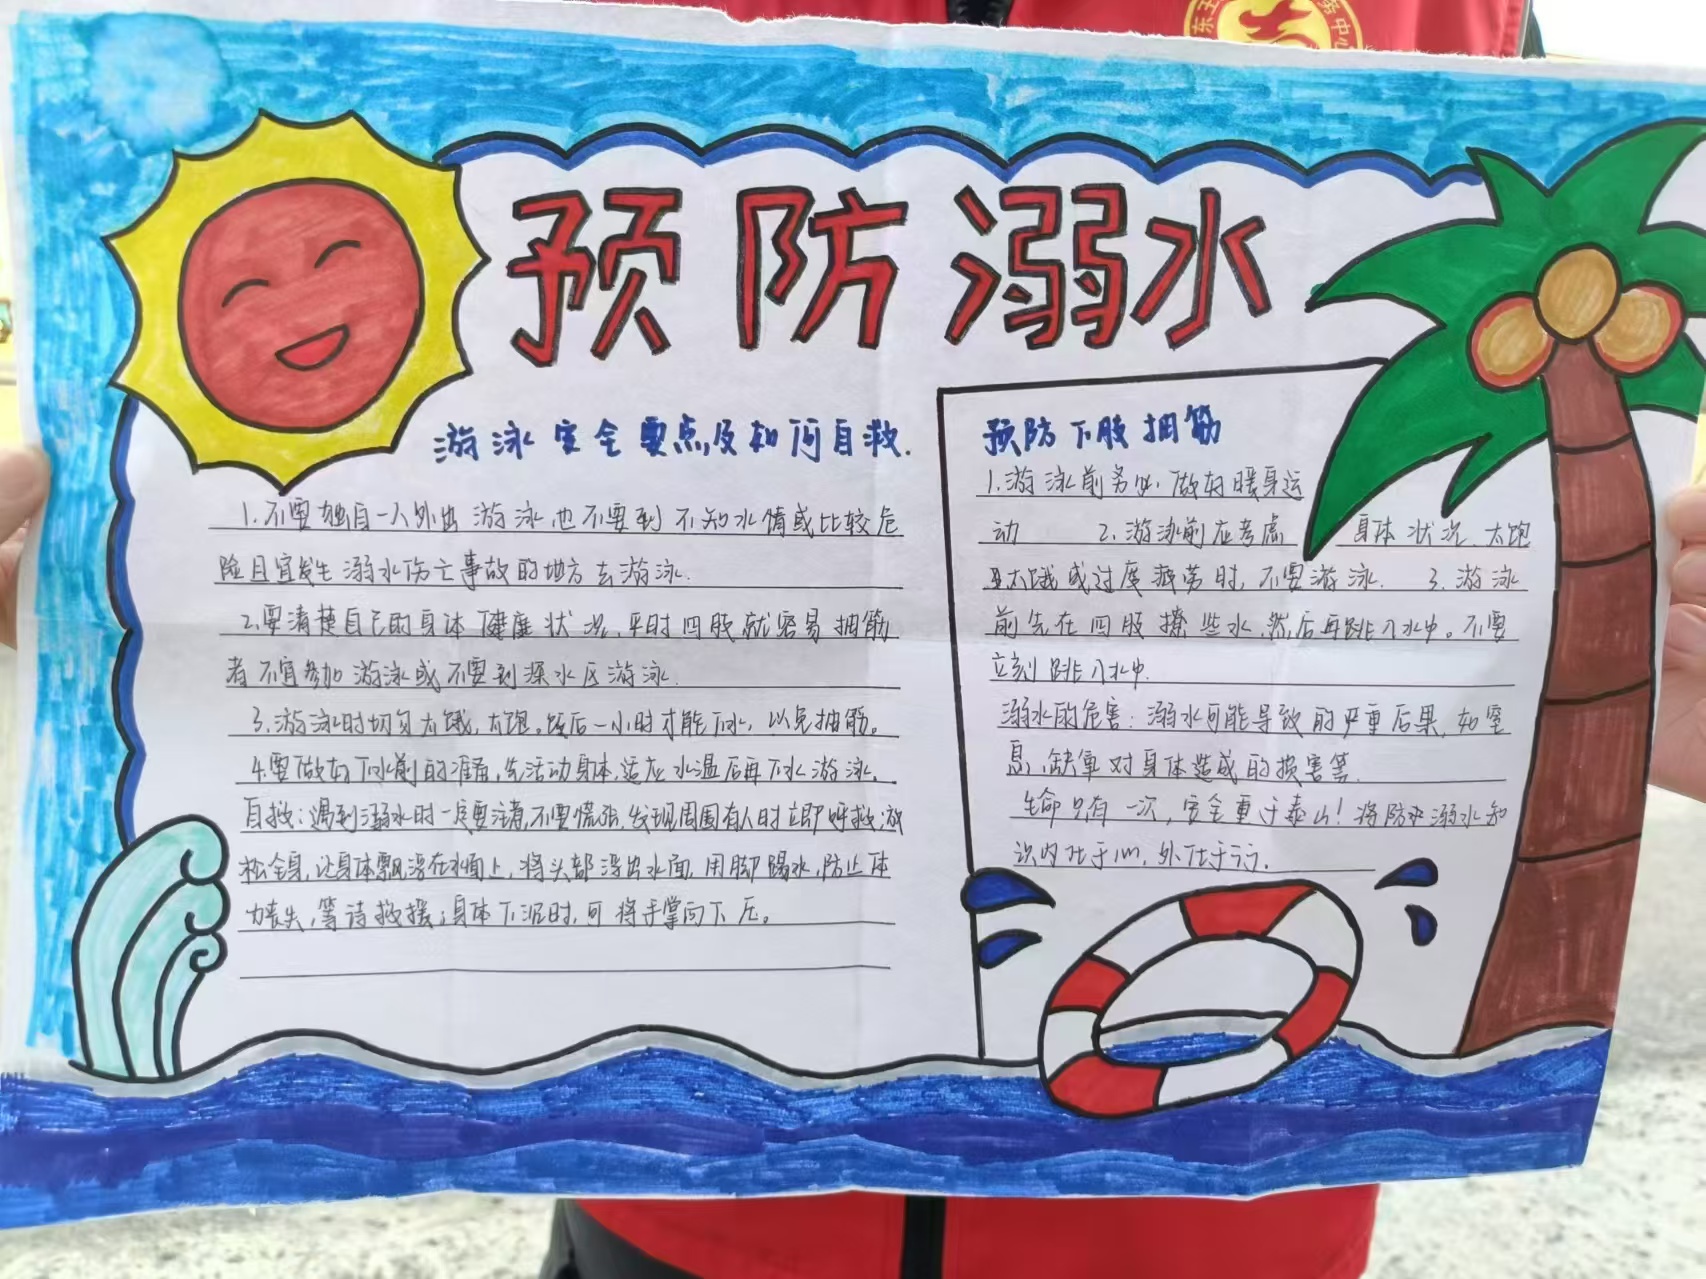 预防溺水
游泳安全要点及如何自救.
1.不要独自一人外出游泳也不要到不知水情或比较危
险且宜发生溺水伤亡事故的地方去游泳.
2.要清楚自己的身体健康状况,平时四肢就容易抽筋
者不宜参加游泳或不要到深水区游泳.
3.游泳时切勿太饿,太饱。饭后一小时才能下水,以免抽筋。
4.要做好下水前的准备,先活动身体,适应水温后再下水游泳.
自救:遇到溺水时一定要注着,不要慌张,发现周围有人时立即呼救,放
松全身,让身体飘浮在水面上,将头部浮出水面,用脚踢水,防止体
力丧失,等待救援;身体下沉时,可将手掌向下压。
预防下肢抽筋
1.游泳前务必做好暖身运
动 2.游泳前应考虑 身体状况,太饱
太饿或过度疲劳时,不要游泳. 3.游泳
前先在四肢撩些水,然后再跳入水中。不要
立刻跳入水中.
溺水的危害:溺水可能导致的严重后果,如窒
息、缺氧对身体造成的损害等.
生命只有一次,安全重于泰山!将防止溺水知
识内化于心,外化于行.
东 务中心